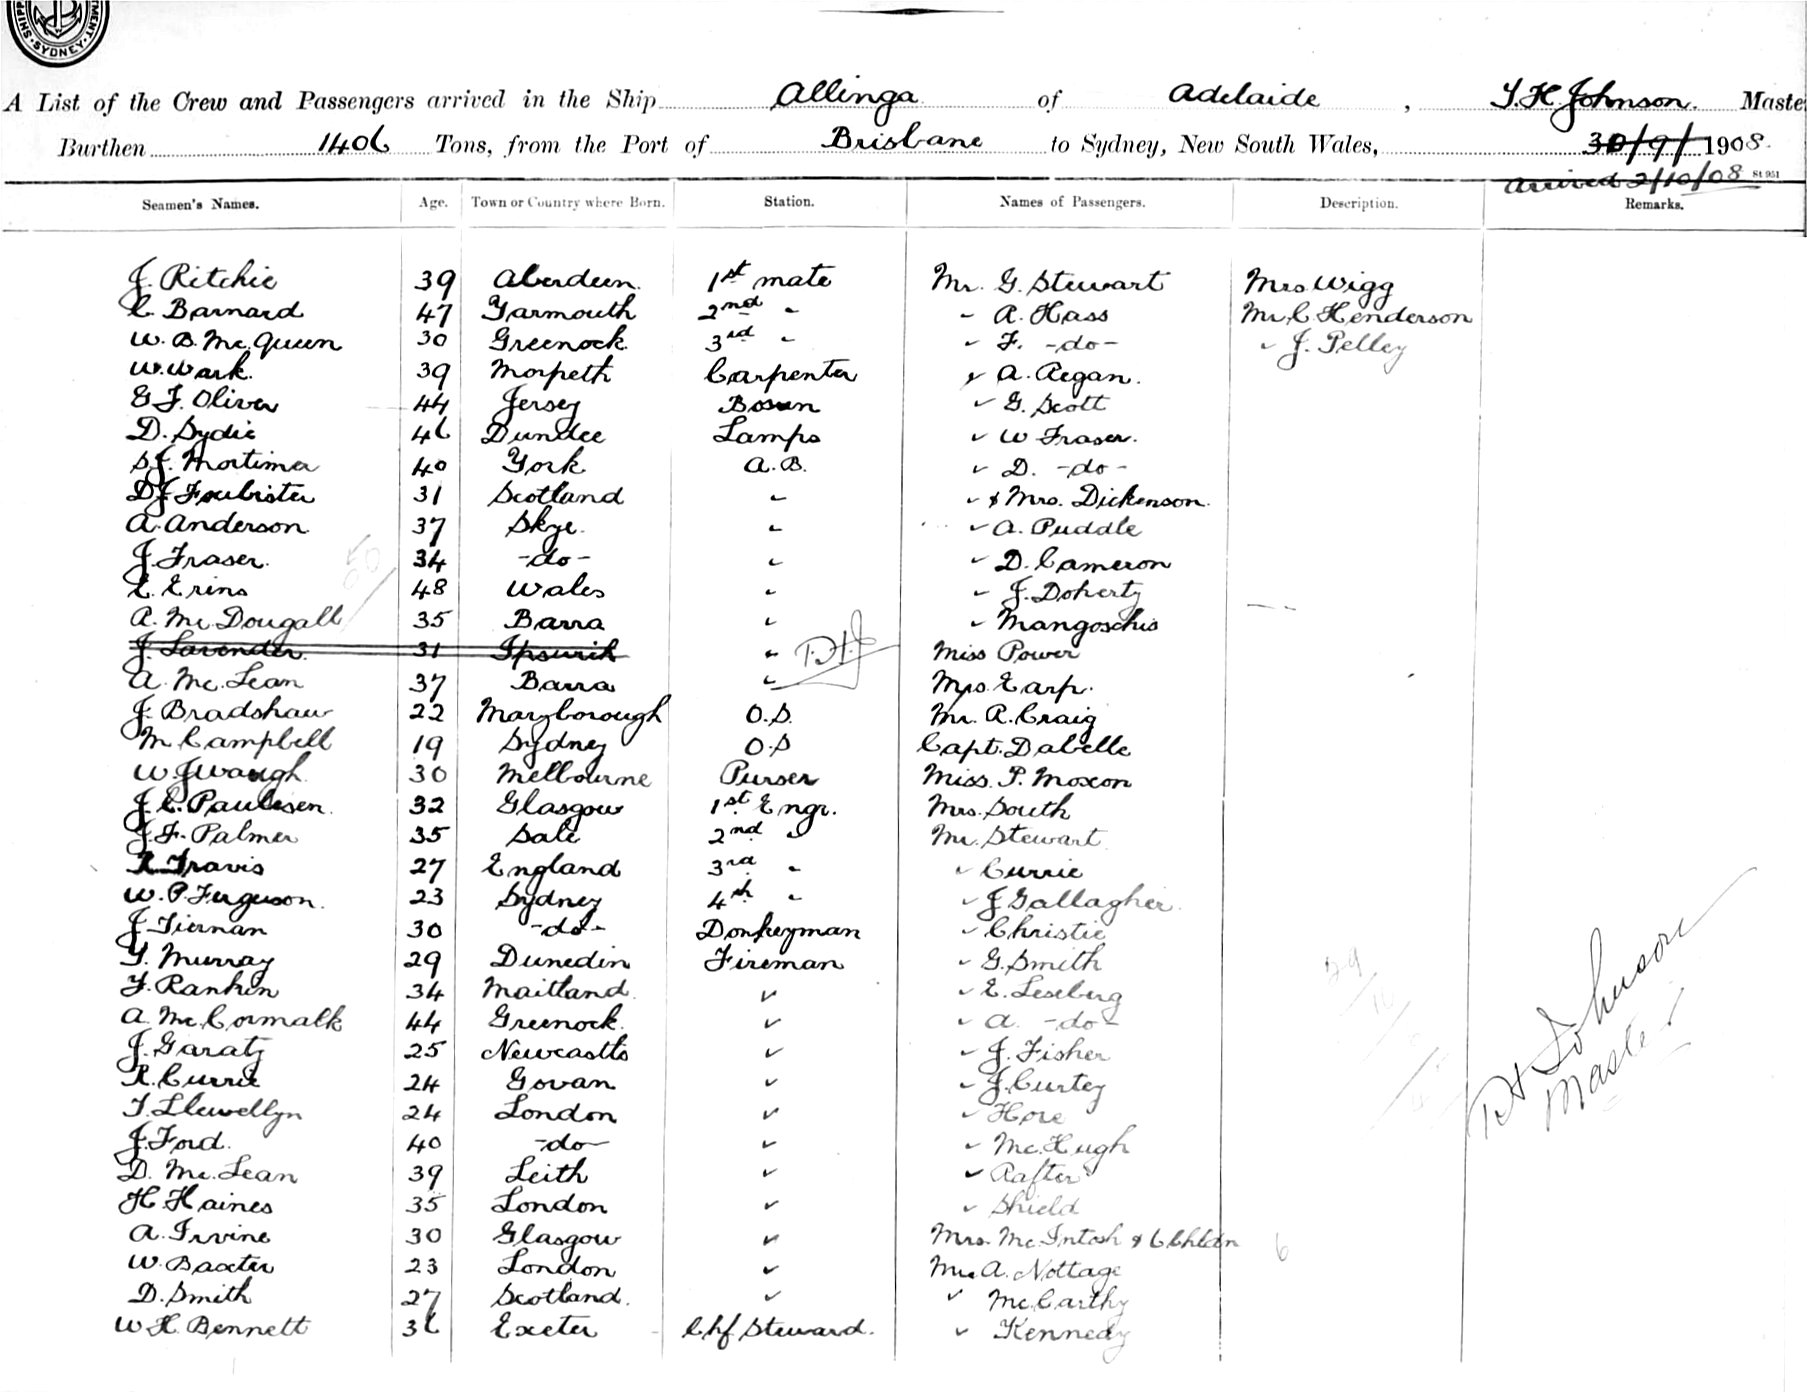 SYDNEY
A List of the Crew and Passengers arrived in the Ship Allinga of Adelaide, T. H. Johnson. Maste
Burthen 1406 Tons, from the Port of Brisbane to Sydney, New South Wales, 30/9/1908.
arrived 2/10/08 St 951
Seamen's Names. Age. Town or Country where Born. Station. Names of Passengers. Description. Remarks.
J. Ritchie 39 Aberdeen. 1st mate Mr. G. Stewart Mrs Wigg
C. Barnard 47 Yarmouth 2nd " " A. Hass Mr C Henderson
W. B. Mc.Queen 30 Greenock 3rd " " F. -do- " J. Pelley
W. Wark. 39 Morpeth Carpenter " A. Regan.
E J. Oliver 44 Jersey Bosun " G. Scott
D. Sydie 46 Dundee Lamps " W Fraser.
S J. Mortimer 40 York A.B. " D. -do-
D J Foubister 31 Scotland " " & Mrs. Dickenson.
A. Anderson 37 Skye. " " A. Puddle
J. Fraser. 34 -do- " " D. Cameron
E. Erins 48 Wales " " J. Doherty
A. Mc Dougall 35 Barra " " Mangoschis
J. Lavender. 31 Ipswich " T.H.J. Miss Power
A. Mc.Lean 37 Barra " Mrs. Earp.
J. Bradshaw 22 Maryborough O.S. Mr. A. Craig
M Campbell 19 Sydney O.S Capt. Dabelle
W J Waugh. 30 Melbourne Purser Miss. P. Moxon
J. C. Paulisen. 32 Glasgow 1st Engr. Mrs. South
J. F. Palmer 35 Sale 2nd " Mr. Stewart
R Travis 27 England 3rd " " Currie
W. P. Ferguson. 23 Sydney 4th " " J Gallagher.
J. Tiernan 30 -do- Donkeyman " Christie
T. Murray 29 Dunedin Fireman " G. Smith
F. Rankin 34 Maitland. " " E. Leseberg
A. Mc.Cormalk 44 Greenock. " " A. -do-
J. Garaty 25 Newcastle " " J. Fisher
R. Currie 24 Govan " " J. Curtey
T. Llewellyn 24 London " " Hore
J. Ford. 40 -do- " " Mc.Hugh
D. Mc.Lean 39 Leith " " Rafter
H Haines 35 London " " Shield
A. Irvine 30 Glasgow " Mrs. Mc.Intosh & 6 Chldn 6
W. Baxter 23 London " Mrs A. Nottage
D. Smith 27 Scotland. " " McCarthy
W H. Bennett 36 Exeter Chf Steward. " Kennedy
TH Johnson
Master